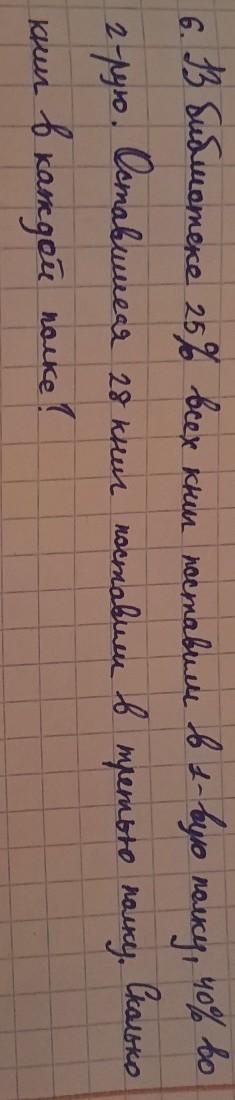 6. В библиотеке 25% всех книг поставили в 1-вую полку, 40% во
2-рую. Оставшиеся 28 книг поставили в третью полку. Сколько
книг в каждой полке?